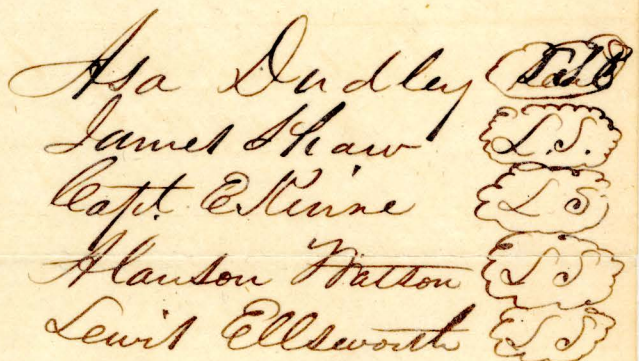 Asa Dudley
James Shaw L.S.
Capt. E Kinne L S
Alanson Watson L S
Lewis Ellsworth L S